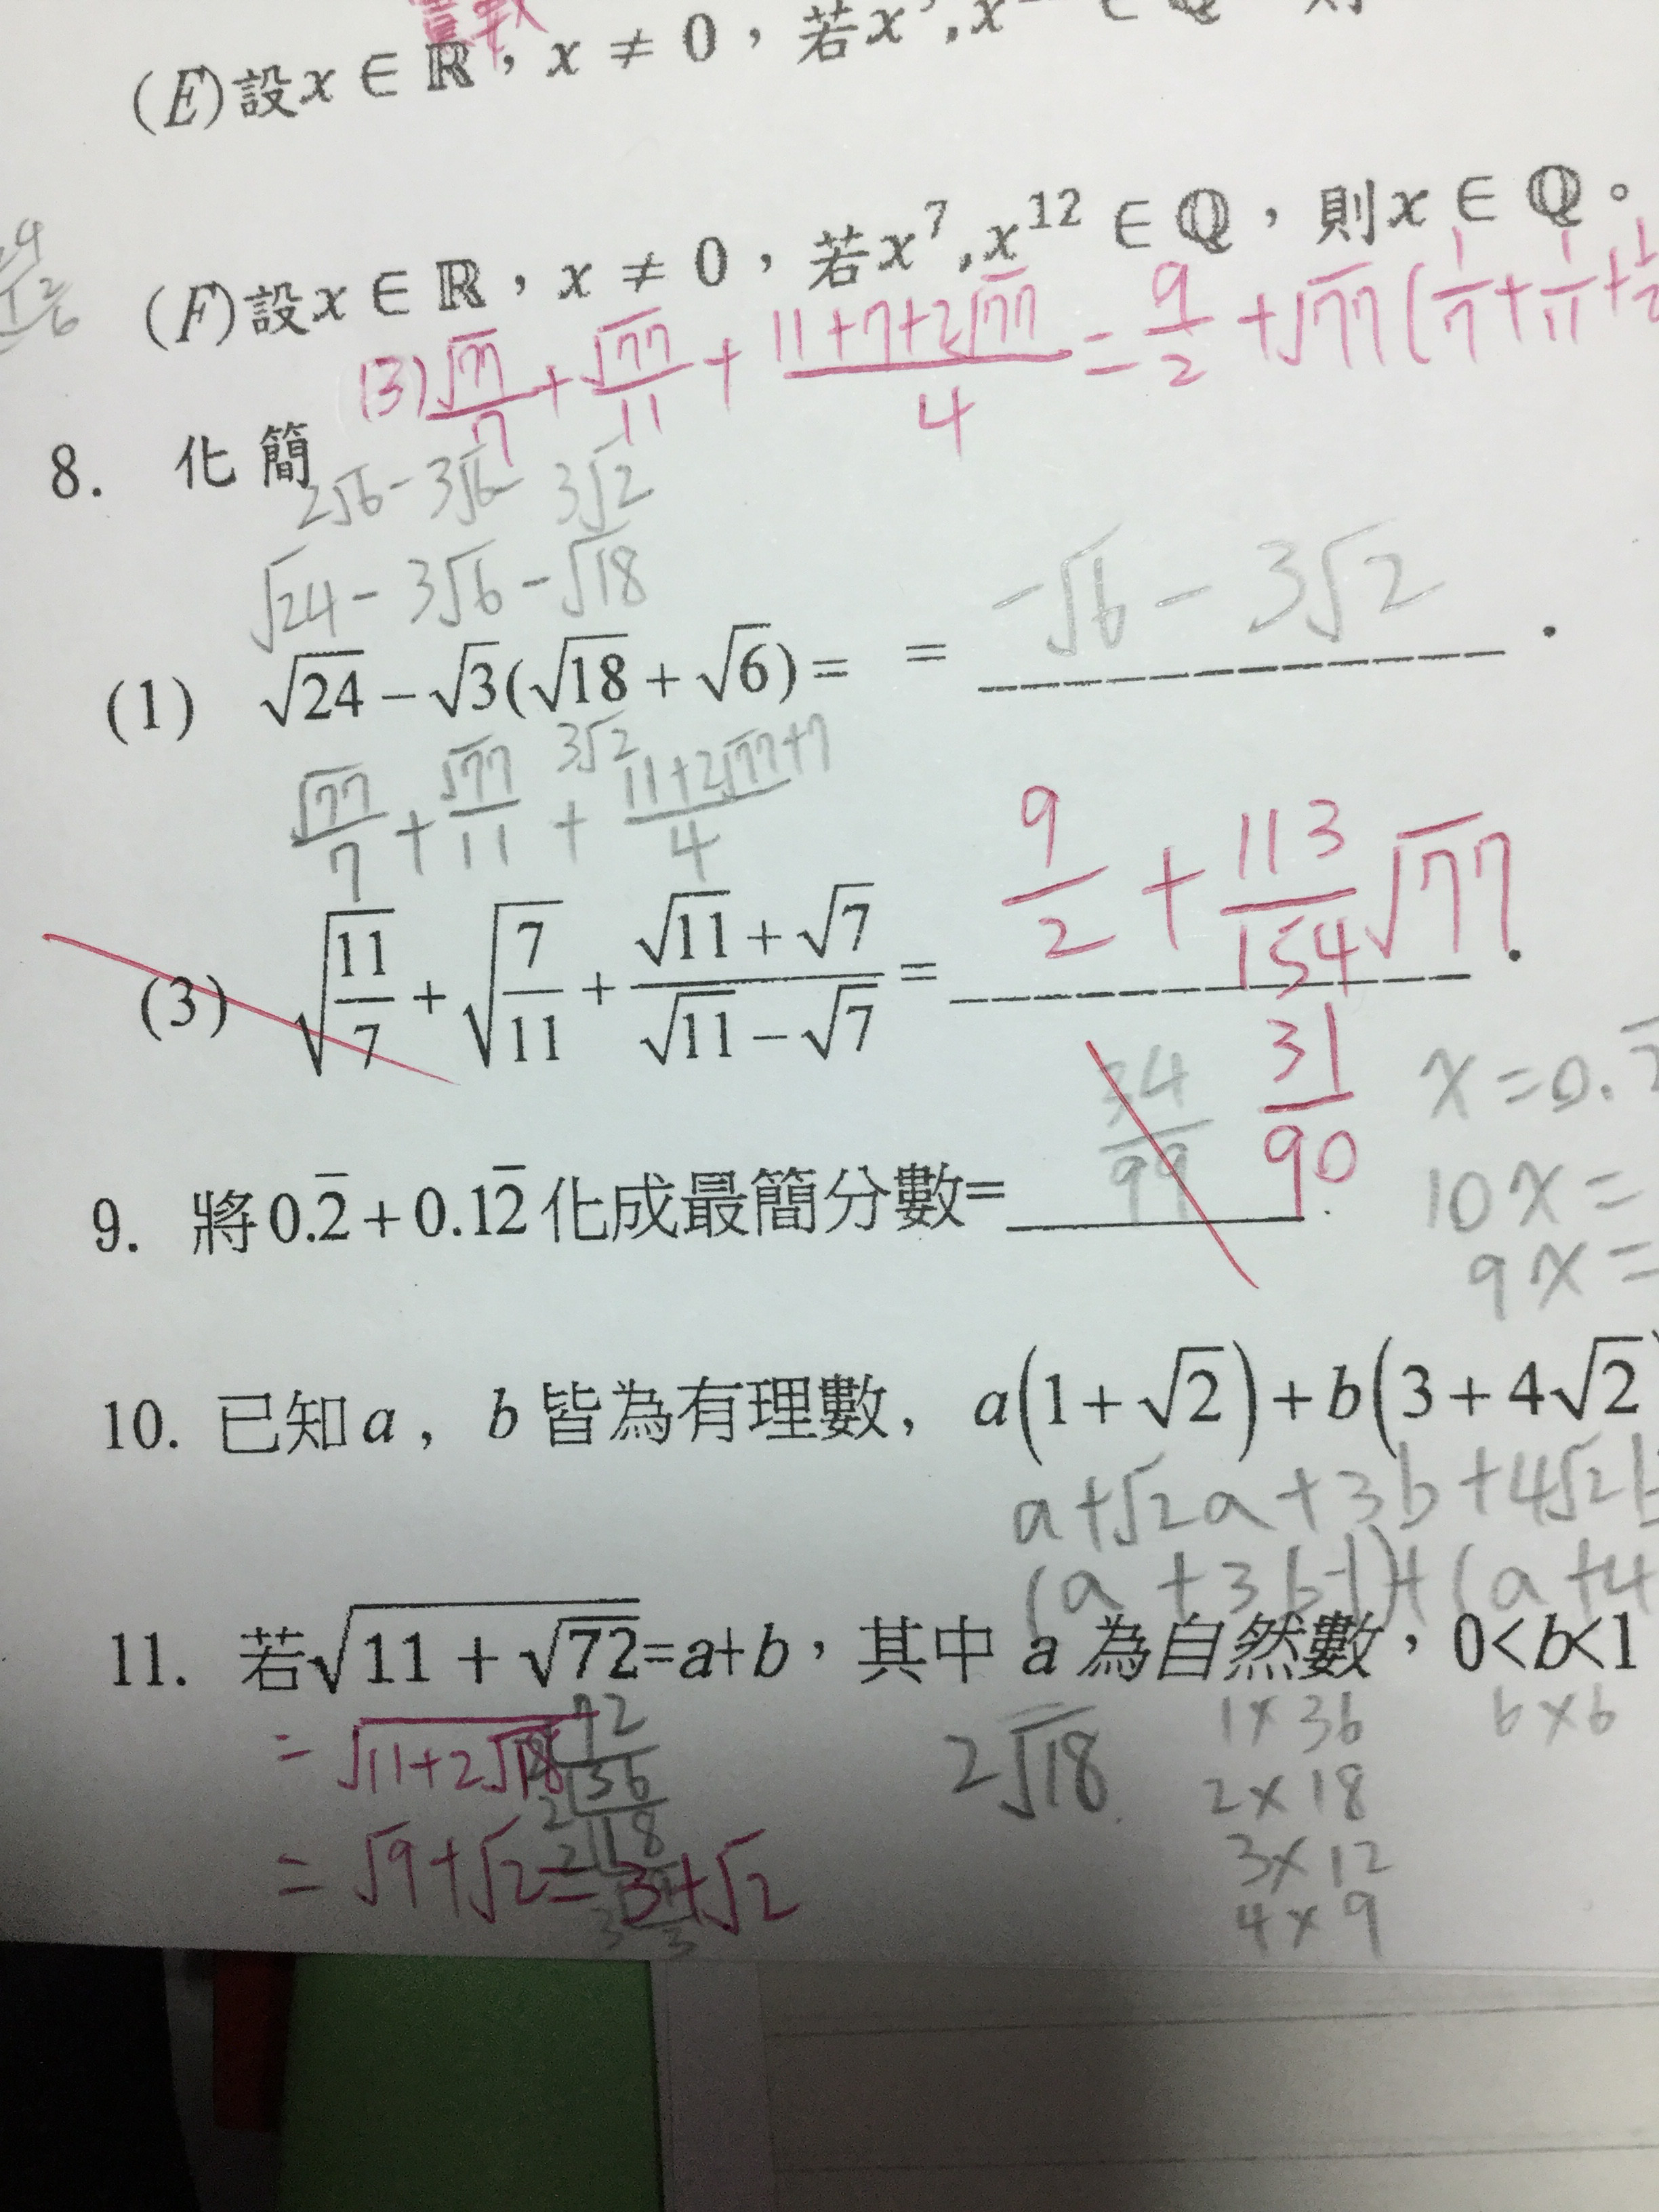 實數
(E)設x ∈ ℝ，x ≠ 0，若x ,x ∈ ℚ 則
(F)設x ∈ ℝ，x ≠ 0，若x⁷,x¹² ∈ ℚ，則x ∈ ℚ。
(3) √77/7 + √77/11 + (11+7+2√77)/4 = 9/2 + √77(1/7+1/11+1/2
8. 化簡
2√6 - 3√6 - 3√2
√24 - 3√6 - √18
(1) √24 − √3(√18 + √6) = = -√6 - 3√2 .
3√2
√77/7 + √77/11 + (11+2√77+7)/4
(3) √(11/7) + √(7/11) + (√11 + √7)/(√11 − √7) = 9/2 + 113/154 √77 .
9. 將0.2̅ + 0.12̅ 化成最簡分數= 34/99 31/90 .
x = 0.
10x =
9x =
10. 已知a，b 皆為有理數，a(1 + √2) + b(3 + 4√2
a + √2a + 3b + 4√2b
(a + 3b-1) + (a + 4
11. 若√(11 + √72)=a+b，其中 a 為自然數，0<b<1
= √(11+2√18)
= √9 + √2 = 3 + √2
2|72
2|36
2|18
3|9
3
2√18
1 × 36
2 × 18
3 × 12
4 × 9
6 × 6